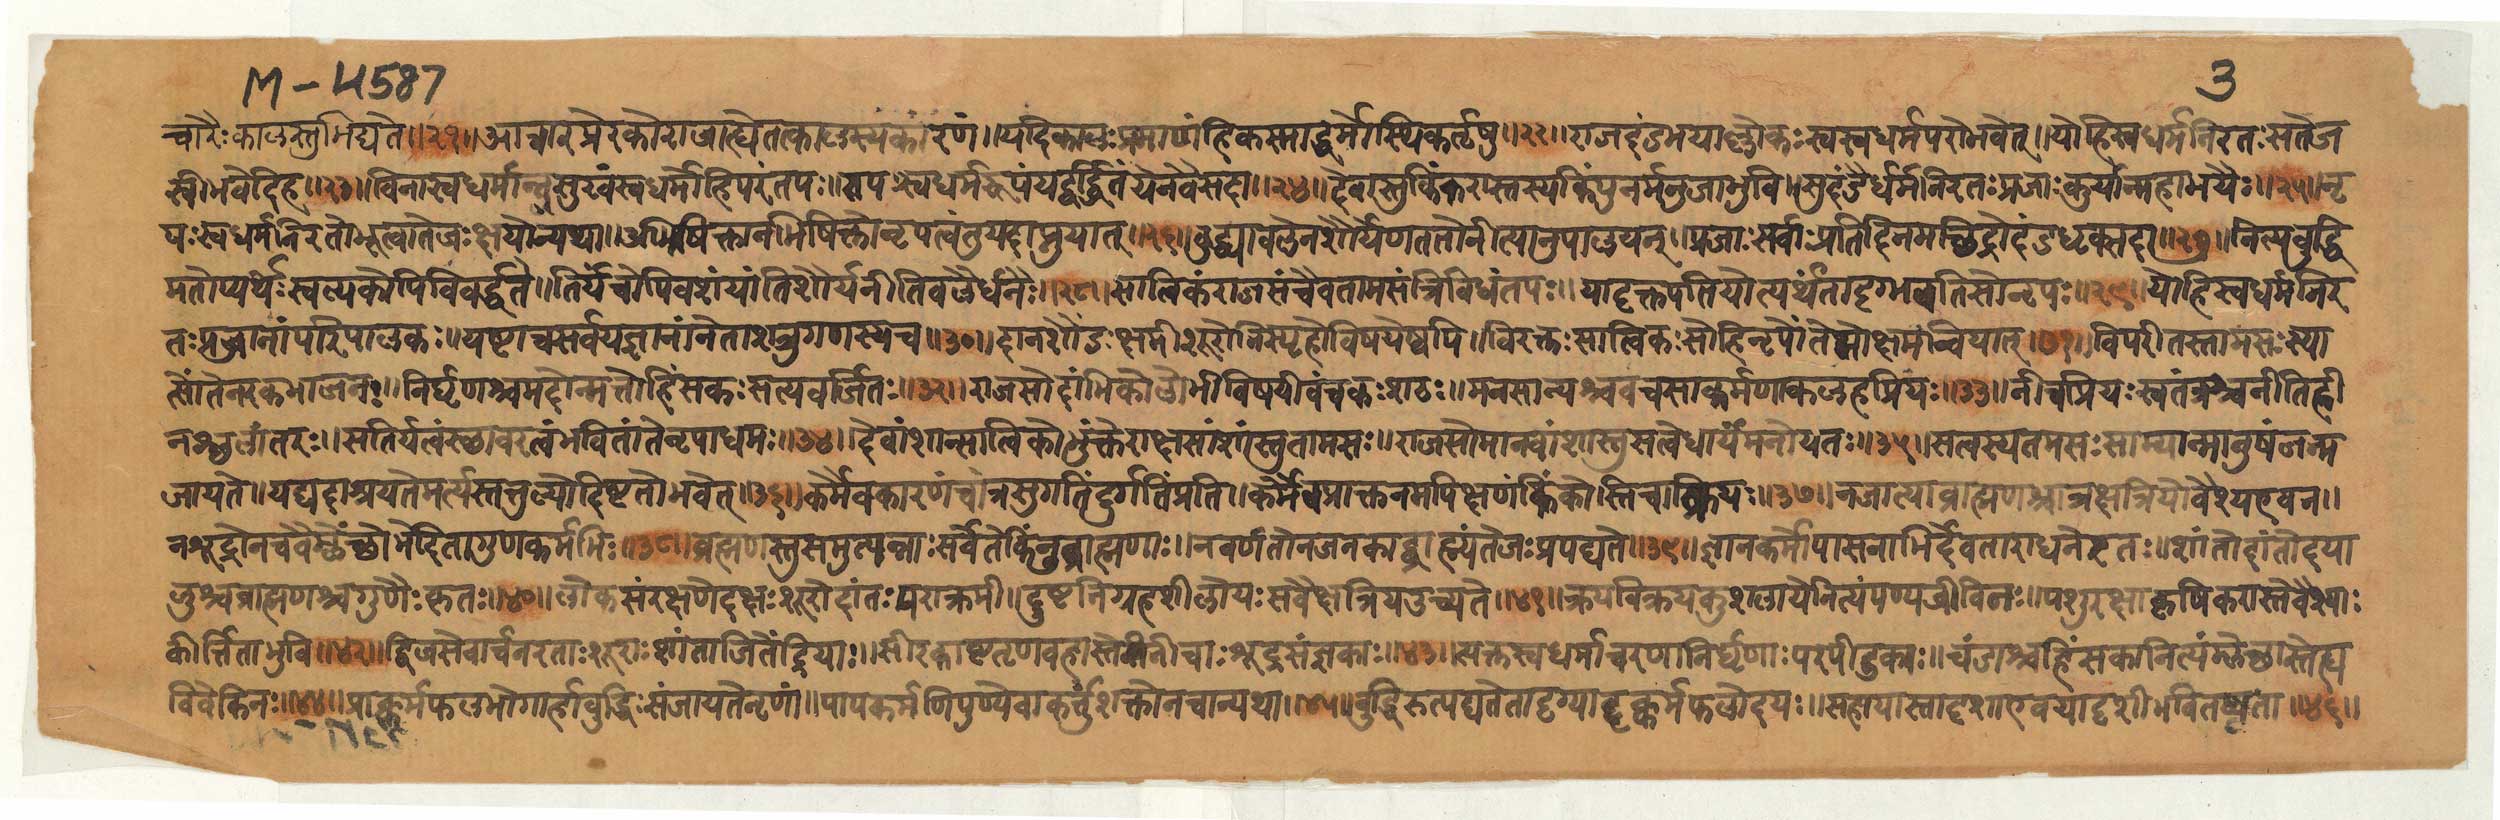 M-4587
3
चारैः कालस्तु भिद्यते ॥२१॥ आचारप्रेरको राजा ह्येतत्कालस्य कारणं ॥ यदि कालः प्रमाणं हि कस्माद्धर्मोस्ति कर्तृषु ॥२२॥ राजदंडभयाल्लोकः स्वस्वधर्मपरो भवेत् ॥ यो हि स्वधर्मनिरतः स तेज
स्वी भवेदिह ॥२३॥ विना स्वधर्मान्न सुखं स्वधर्मो हि परं तपः ॥ तपः स्वधर्मरूपं यद्वर्द्धितं येन वै सदा ॥२४॥ देवास्तु किंकरास्तस्य किं पुनर्मनुजा भुवि ॥ सुदंडैर्धर्मनिरताः प्रजाः कुर्यान्महाभयैः ॥२५॥ नृ
पः स्वधर्मनिरतो भूत्वा तेजः क्षयोन्यथा ॥ अभिषिक्तानभिषिक्तो नृपत्वं तु यदाप्नुयात् ॥२६॥ बुद्ध्या बलेन शौर्येण ततो नीत्यानुपालयन् ॥ प्रजाः सर्वाः प्रतिदिनमछिद्रो दंडधृक्सदा ॥२७॥ नित्यबुद्धि
मतोप्यर्थः स्वल्पकोपि विवर्द्धते ॥ तिर्यंचोपि वशं यांति शौर्यनीतिबलैर्धनैः ॥२८॥ सात्विकं राजसं चैव तामसं त्रिविधं तपः ॥ यादृक्तपति योत्यर्थं तादृग्भवति सो नृपः ॥२९॥ यो हि स्वधर्मनिर
तः प्रजानां परिपालकः ॥ यष्टा च सर्वयज्ञानां नेता शत्रुगणस्य च ॥३०॥ दानशौंडः क्षमी शूरो निस्पृहो विषयेष्वपि ॥ विरक्तः सात्विकः सो हि नृपोंते मोक्षमन्वियात् ॥३१॥ विपरीतस्तामसः स्या
त्सोंते नरकभाजनः ॥ निर्घृणश्च मदोन्मत्तो हिंसकः सत्यवर्जितः ॥३२॥ राजसो दांभिको लोभी विषयी वंचकः शठः ॥ मनसान्यश्च वचसा कर्मणा कलहप्रियः ॥३३॥ नीचप्रियः स्वतंत्रश्च नीतिही
नश्छलांतरः ॥ स तिर्यक्त्वं स्थावरत्वं भवितांते नृपाधमः ॥३४॥ देवांशान्सात्विको भुंक्ते राक्षसांशांस्तु तामसः ॥ राजसो मानवांशांस्तु सत्वे धार्यं मनो यतः ॥३५॥ सत्वस्य तमसः साम्यान्मानुषं जन्म
जायते ॥ यद्यदाश्रयते मर्त्यस्तत्तुल्यो दिष्टतो भवेत् ॥३६॥ कर्मैव कारणं चात्र सुगतिं दुर्गतिं प्रति ॥ कर्मैव प्राक्तनमपि क्षणं किं कोस्ति चाक्रियः ॥३७॥ न जात्या ब्राह्मणश्चात्र क्षत्रियो वैश्य एव न ॥
न शूद्रो न च वै म्लेच्छो भेदिता गुणकर्मभिः ॥३८॥ ब्रह्मणस्तु समुत्पन्नाः सर्वे ते किं नु ब्राह्मणाः ॥ न वर्णतो न जनकाद्ब्राह्म्यं तेजः प्रपद्यते ॥३९॥ ज्ञानकर्मोपासनाभिर्देवताराधने रतः ॥ शांतो दांतो दया
लुश्च ब्राह्मणश्च गुणैः कृतः ॥४०॥ लोकसंरक्षणे दक्षः शूरो दांतः पराक्रमी ॥ दुष्टनिग्रहशीलो यः स वै क्षत्रिय उच्यते ॥४१॥ क्रयविक्रयकुशला ये नित्यं पण्यजीविनः ॥ पशुरक्षाकृषिकरास्ते वैश्याः
कीर्त्तिता भुवि ॥४२॥ द्विजसेवार्चनरताः शूराः शांता जितेंद्रियाः ॥ सीरकाष्टतृणवहास्ते नीचाः शूद्रसंज्ञकाः ॥४३॥ त्यक्तस्वधर्माचरणा निर्घृणाः परपीडकाः ॥ चंडाश्च हिंसका नित्यं म्लेच्छास्ते ह्य
विवेकिनः ॥४४॥ प्राक्कर्मफलभोगार्हा बुद्धिः संजायते नृणां ॥ पापकर्मणि पुण्ये वा कर्तुं शक्तो न चान्यथा ॥४५॥ बुद्धिरुत्पद्यते तादृग्यादृक्कर्मफलोदयः ॥ सहायास्तादृशा एव यादृशी भवितव्यता ॥४६॥